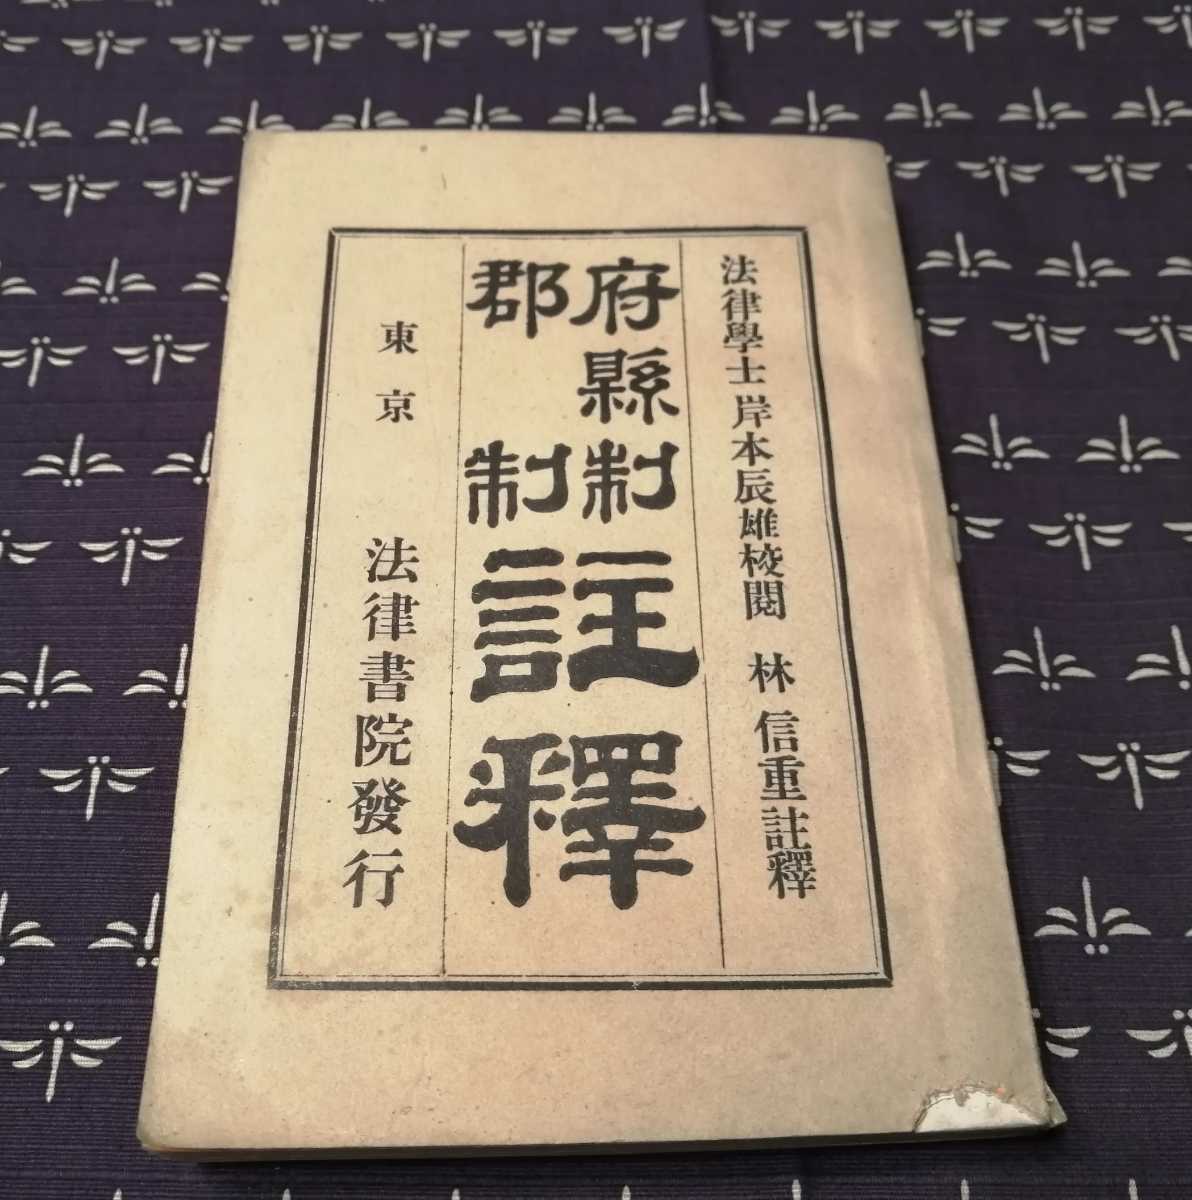 法律學士 岸本辰雄校閱 林 信重註釋
府縣制
郡制
註釋
東京 法律書院發行